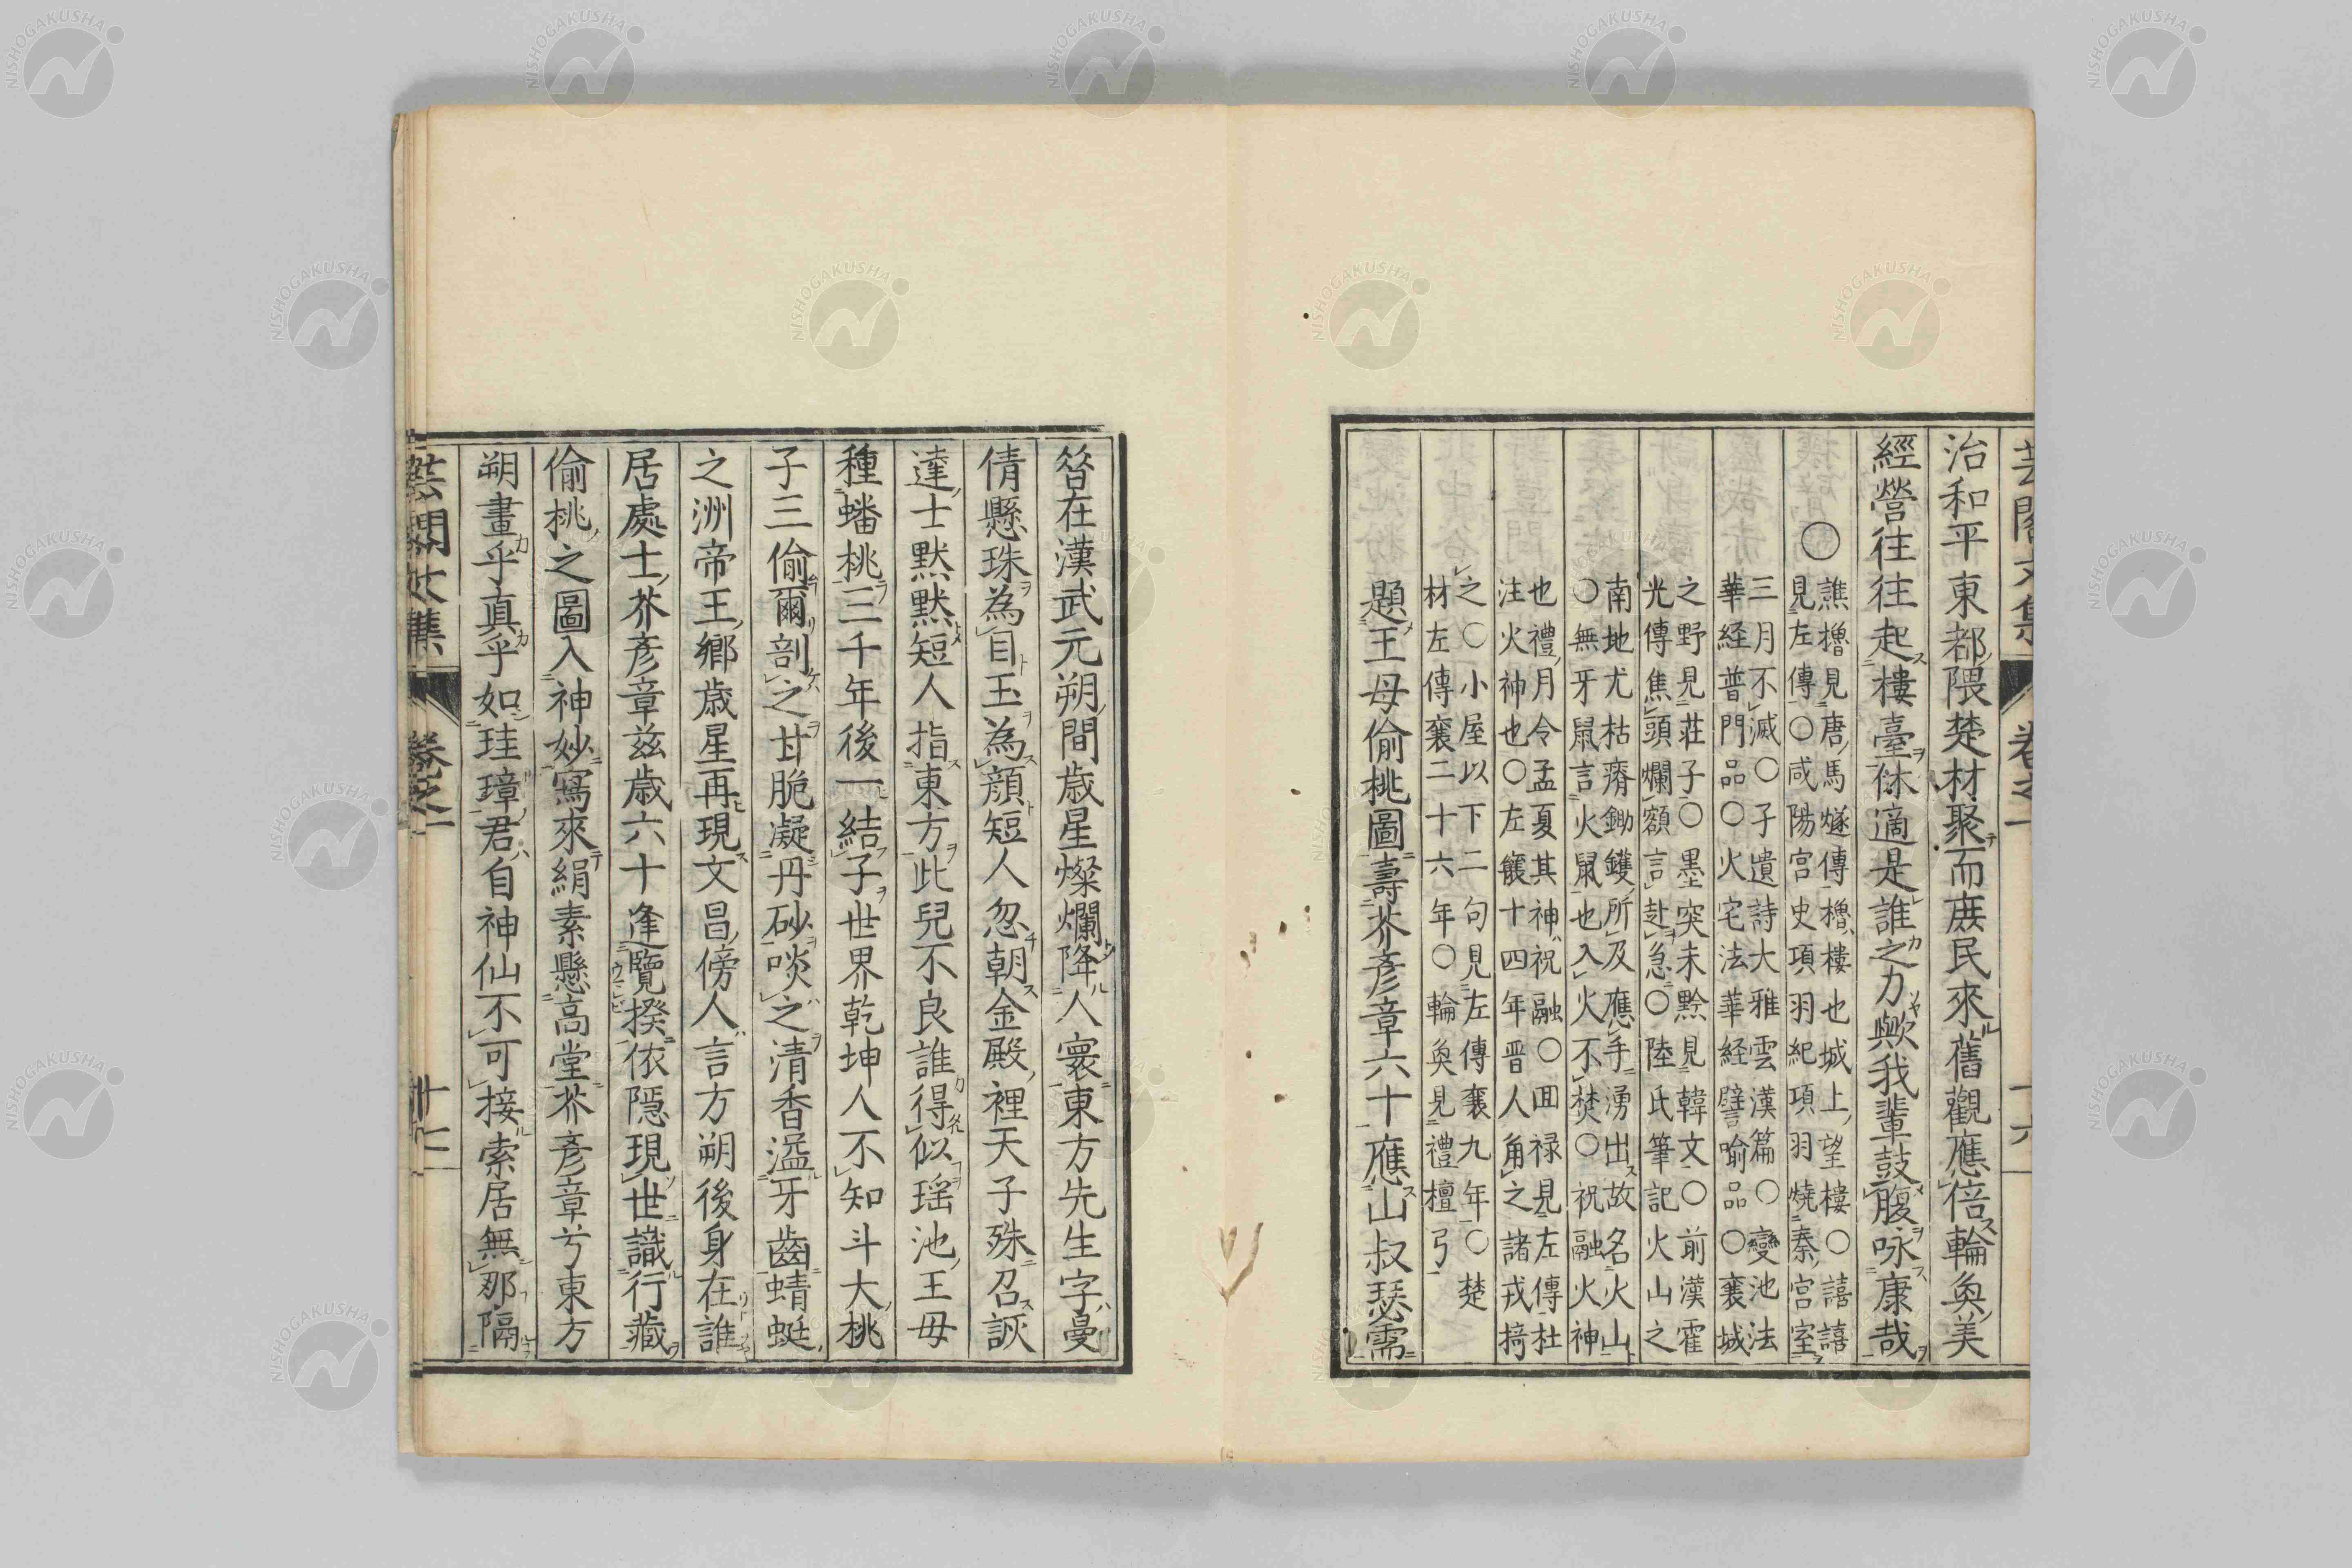 芸閣文集 卷之一 十六
治和平東都隈楚材聚而庶民來舊觀應倍輪奐美
經營往往起樓臺休適是誰之力歟我輩鼓腹咏康哉
○
譙櫓見唐馬燧傳櫓樓也城上望樓○譆譆
見左傳○咸陽宮史項羽紀項羽燒秦宮室
三月不滅○子遺詩大雅雲漢篇○變池法
華経普門品○火宅法華経譬喻品○襄城
之野見莊子○墨突未黔見韓文○前漢霍
光傳焦頭爛額言赴急○陸氏筆記火山之
南地尤枯瘠鋤钁所及應手湧出故名火山
○無牙鼠言火鼠也入火不焚○祝融火神
也禮月令孟夏其神祝融○回禄見左傳杜
注火神也○左襄十四年晋人角之諸戎掎
之○小屋以下二句見左傳襄九年○楚
材左傳襄二十六年○輪奐見禮檀弓
題王母偷桃圖壽芥彥章六十應山叔瑟需
昝在漢武元朔間歲星燦爛降人寰東方先生字曼
倩懸珠為目玉為顏短人忽朝金殿裡天子殊召詼
達士默默短人指東方此兒不良誰得似瑶池王母
種蟠桃三千年後一結子世界乾坤人不知斗大桃
子三偷爾剖之甘脆凝丹砂啖之清香溢牙齒蜻蜓
之洲帝王鄉歲星再現文昌傍人言方朔後身在誰
居處士芥彥章茲歲六十逢覽揆依隱現世識行藏
偷桃之圖入神妙寫來絹素懸高堂芥彥章兮東方
朔畫乎真乎如珪璋君自神仙不可接索居無那隔
芸閣文集 卷之一 十七